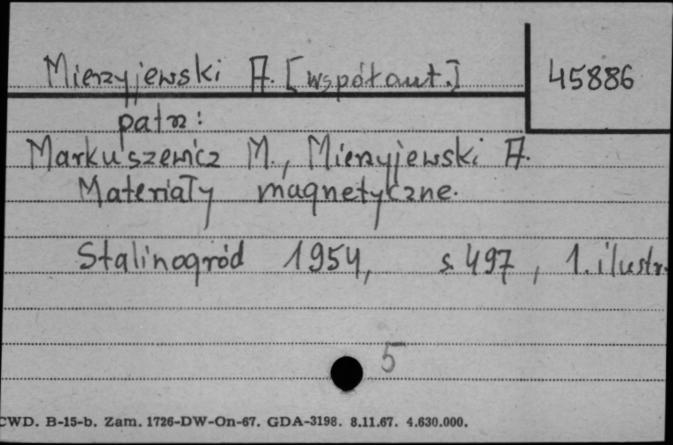 Mierzyjewski A. [współaut.]
45886
patrz:
Markuszewicz M., Mierzyjewski A.
Materiały magnetyczne.
Stalinogród 1954, s. 497, 1. ilustr.
5
CWD. B-15-b. Zam. 1726-DW-On-67. GDA-3198. 8.11.67. 4.630.000.